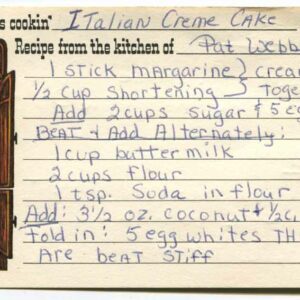 s cookin' Italian Creme Cake
Recipe from the kitchen of Pat Webb
1 stick margarine } crea
1/2 cup shortening } toge
Add 2 cups sugar & 5 eg
Beat & Add Alternately:
1 cup buttermilk
2 cups flour
1 tsp. Soda in flour
Add: 3 1/2 oz. coconut & 1/2 c
Fold in: 5 egg whites Th
Are beat stiff